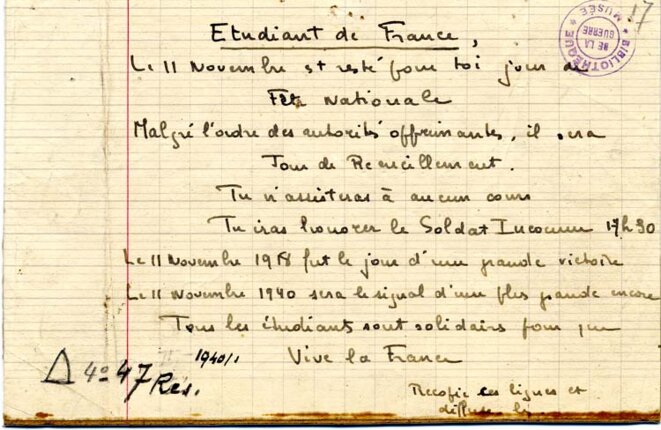 17
BIBLIOTHÈQUE * MUSÉE *
DE LA
GUERRE
Etudiant de France,
Le 11 Novembre est resté pour toi jour de
Fête Nationale
Malgré l'ordre des autorités opprimantes, il sera
Jour de Recueillement.
Tu n'assisteras à aucun cours
Tu iras honorer le Soldat Inconnu 17h30
Le 11 Novembre 1918 fut le jour d'une grande victoire
Le 11 Novembre 1940 sera le signal d'une plus grande encore
Tous les étudiants sont solidaires pour que
Vive la France
Δ 4º 47 Rés. 1940/1
Recopie ces lignes et
diffuse les